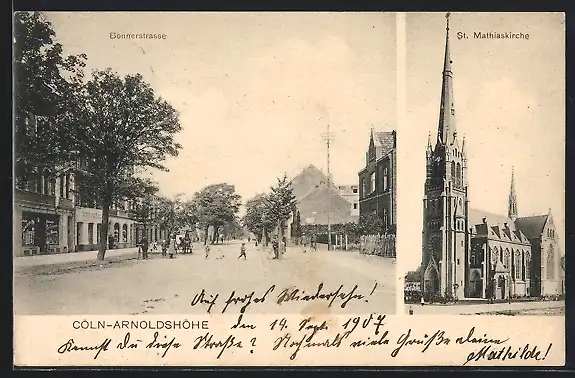 Bonnerstrasse
St. Mathiaskirche
Auf frohes Wiedersehn!
CÖLN-ARNOLDSHÖHE den 14. Sept. 1907
Kennst du diese Straße? Nochmals viele Grüße deine Mathilde!